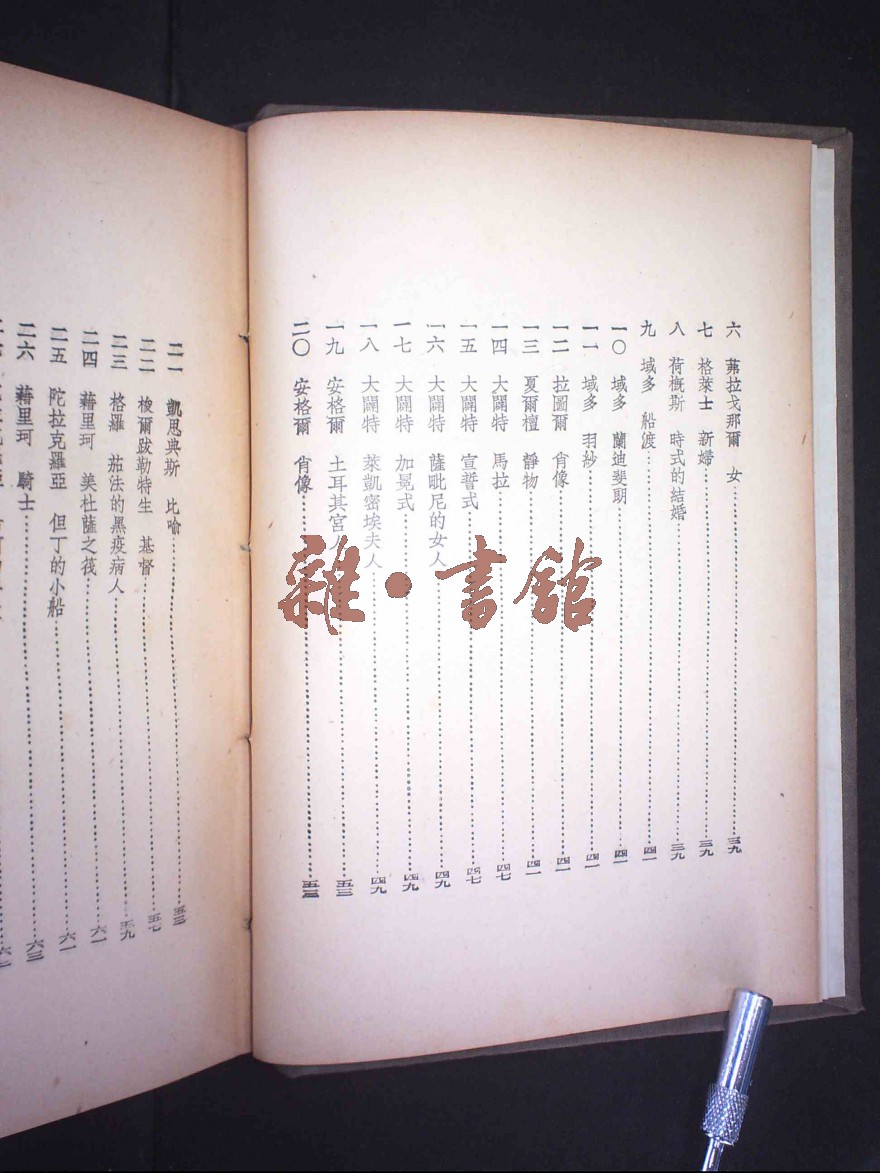 六 茀拉戈那爾 女 三九
七 格萊士 新婦 三九
八 荷概斯 時式的結婚 三九
九 域多 船渡 四一
一〇 域多 蘭迪斐朗 四一
一一 域多 羽紗 四一
一二 拉圖爾 肖像 四一
一三 夏爾檀 靜物 四一
一四 大闢特 馬拉 四七
一五 大闢特 宣誓式 四七
一六 大闢特 薩毗尼的女人 四九
一七 大闢特 加冕式 四九
一八 大闢特 萊凱密埃夫人 四九
一九 安格爾 土耳其宮 五三
二〇 安格爾 肖像 五三
二一 凱思典斯 比喻 五三
二二 梭爾跋勒特生 基督 五七
二三 格羅 茄法的黑疫病人 五九
二四 藉里珂 美杜薩之筏 六一
二五 陀拉克羅亞 但丁的小船 六一
二六 藉里珂 騎士 六三
雜·書館